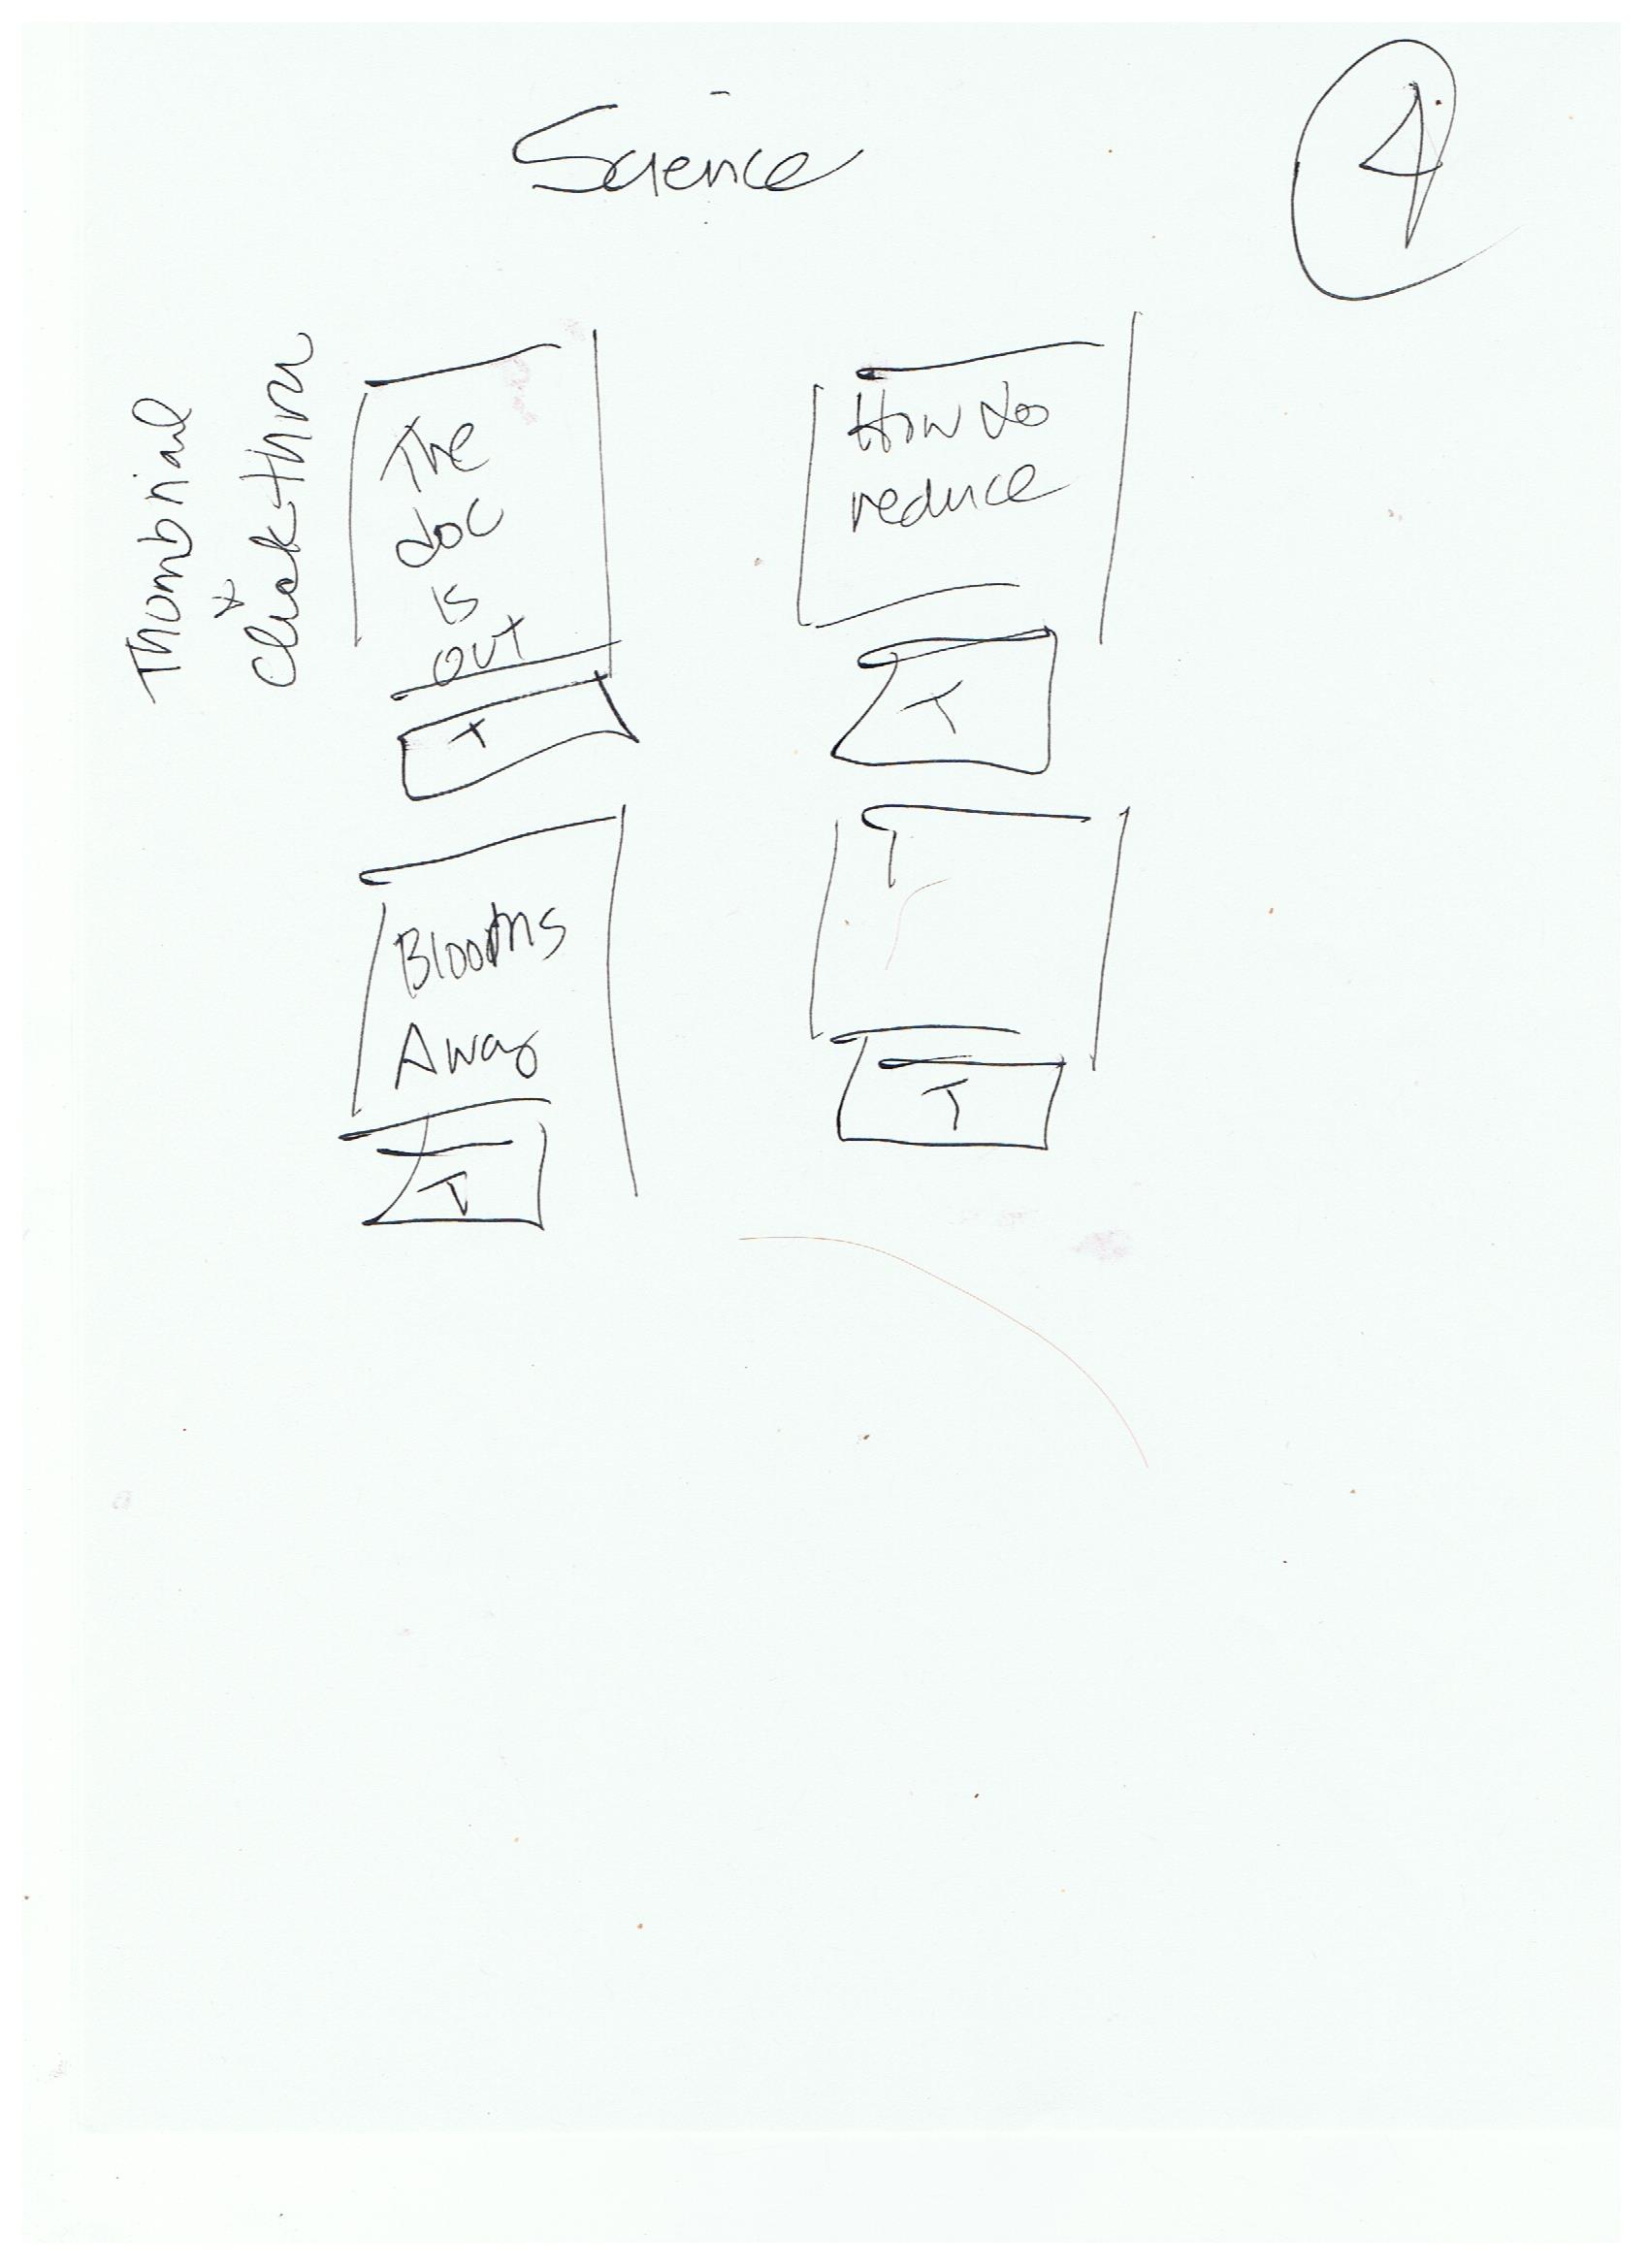 Science
4
Thombnial
+
click-thru
The
doc
is
out
T
How to
reduce
T
Blooms
Away
T
T
T